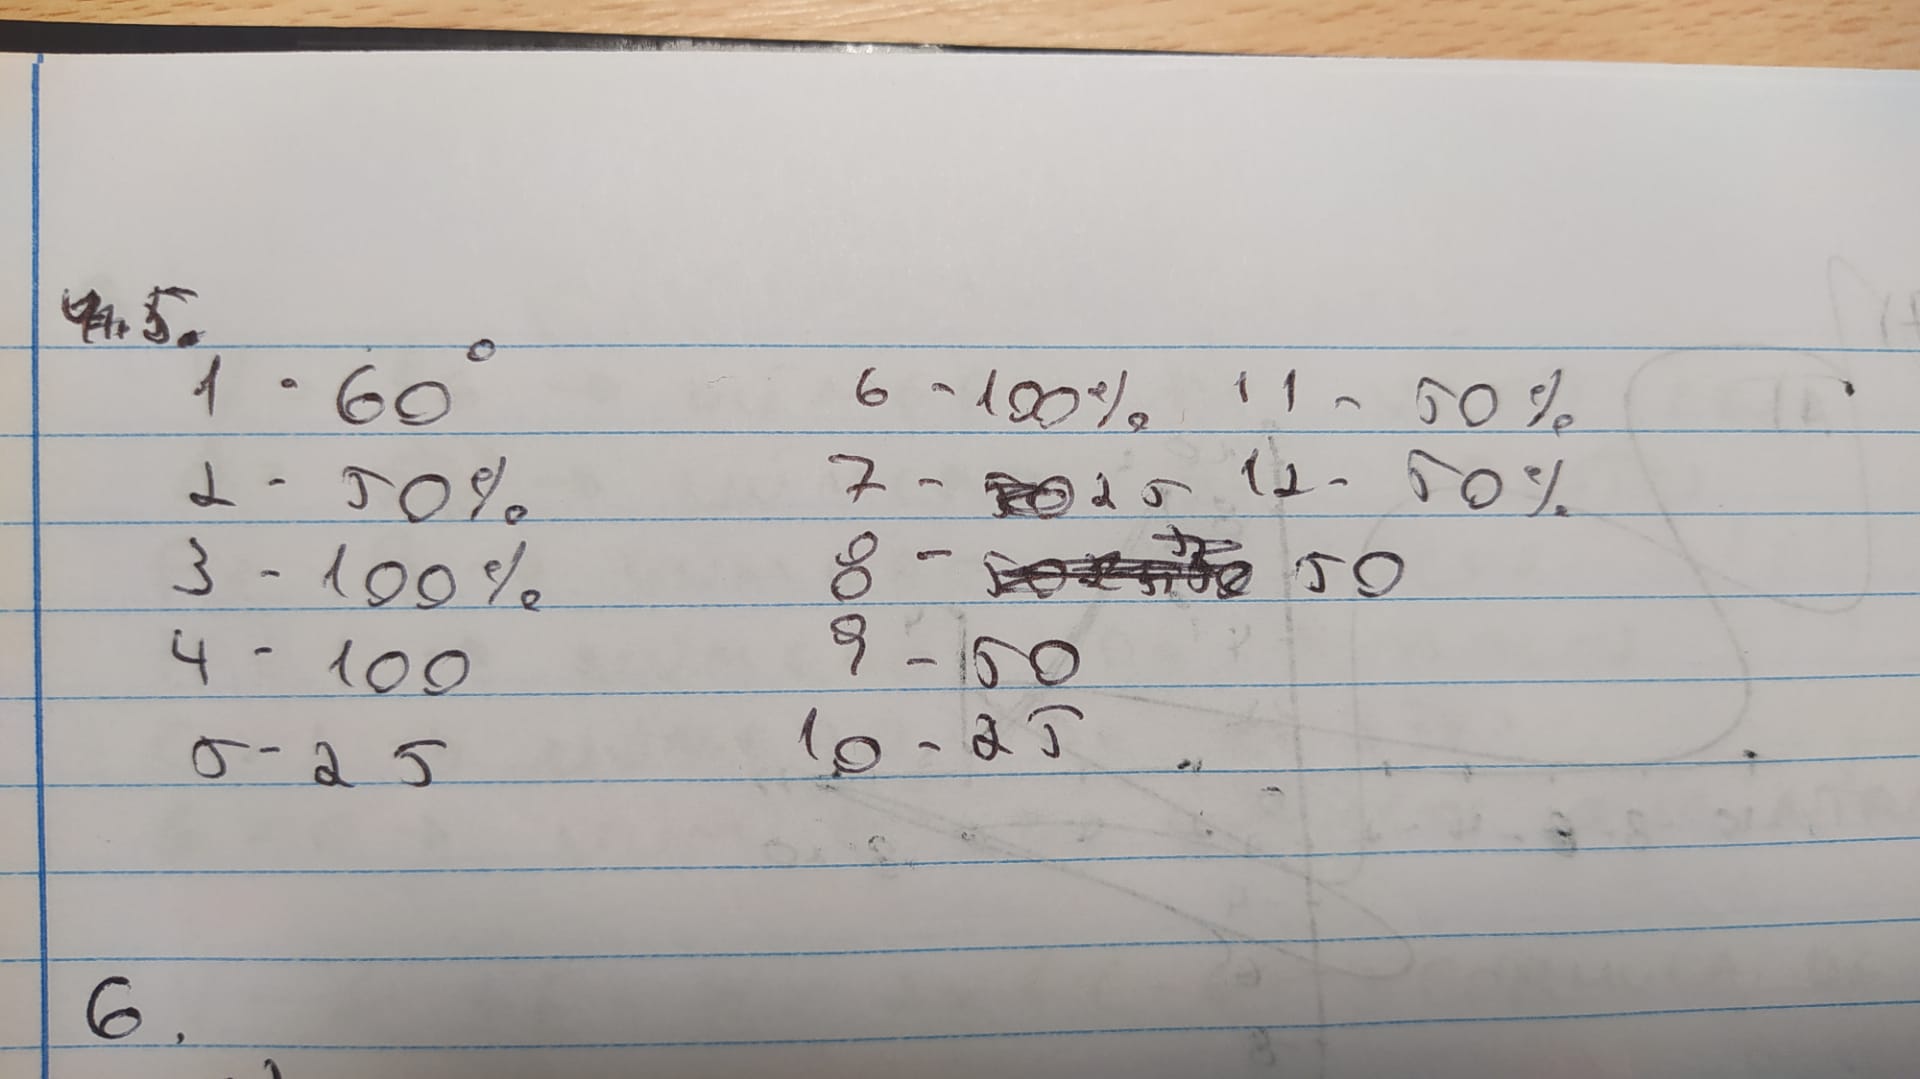 5.
1 - 60°
2 - 50%
3 - 100%
4 - 100
5 - 25
6 - 100%
7 - 25
8 - 50
9 - 50
10 - 25
11 - 50%
12 - 50%
6.